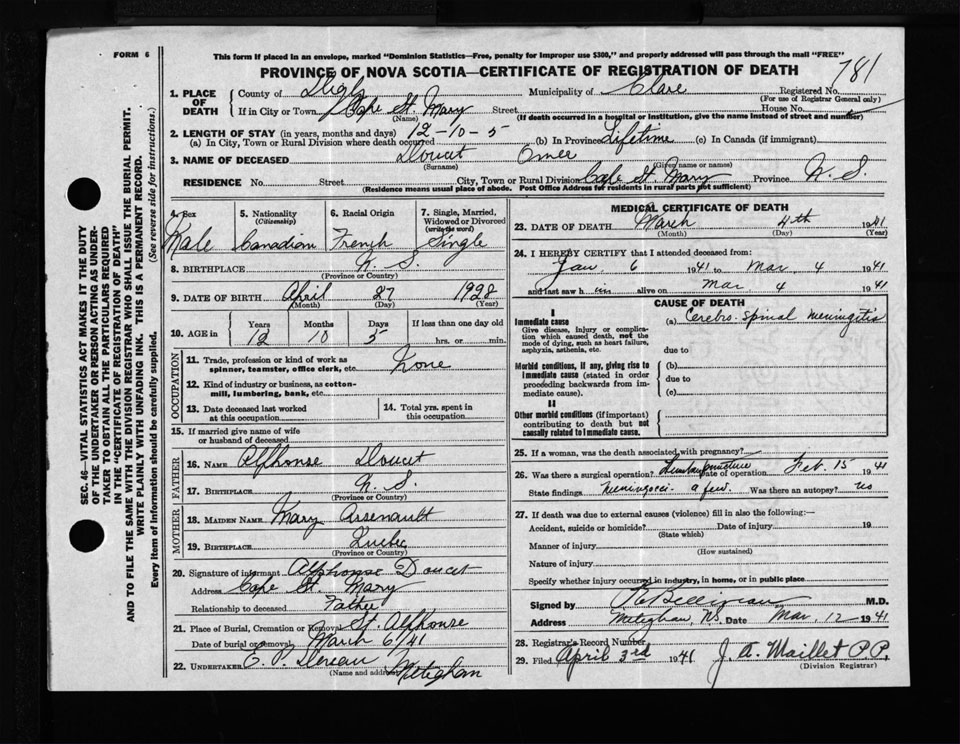 FORM 6
This form if placed in an envelope, marked "Dominion Statistics—Free, penalty for improper use $300," and properly addressed will pass through the mail "FREE"
PROVINCE OF NOVA SCOTIA—CERTIFICATE OF REGISTRATION OF DEATH
781
1. PLACE OF DEATH
County of Digby Municipality of Clare Registered No.
(For use of Registrar General only)
If in City or Town Cape St. Mary Street House No.
(Name) (If death occurred in a hospital or institution, give the name instead of street and number)
2. LENGTH OF STAY (in years, months and days) 12-10-5
(a) In City, Town or Rural Division where death occurred (b) In Province Lifetime (c) In Canada (if immigrant)
3. NAME OF DECEASED Doucet Omer
(Surname) (Given name or names)
RESIDENCE No. Street City, Town or Rural Division Cape St. Mary Province N.S.
(Residence means usual place of abode. Post Office Address for residents in rural parts not sufficient)
4. Sex 5. Nationality 6. Racial Origin 7. Single, Married, Widowed or Divorced
(Citizenship) (write the word)
Male Canadian French Single
8. BIRTHPLACE N.S.
(Province or Country)
9. DATE OF BIRTH April 27 1928
(Month) (Day) (Year)
10. AGE in Years Months Days If less than one day old
12 10 5 hrs. or min.
OCCUPATION
11. Trade, profession or kind of work as spinner, teamster, office clerk, etc. None
12. Kind of industry or business, as cotton-mill, lumbering, bank, etc.
13. Date deceased last worked at this occupation
14. Total yrs. spent in this occupation
15. If married give name of wife or husband of deceased
FATHER
16. NAME Alphonse Doucet
17. BIRTHPLACE N.S.
(Province or Country)
MOTHER
18. MAIDEN NAME Mary Arsenault
19. BIRTHPLACE Quebec
(Province or Country)
20. Signature of informant Alphonse Doucet
Address Cape St. Mary
Relationship to deceased Father
21. Place of Burial, Cremation or Removal St. Alphonse
Date of burial or removal March 6/41
22. UNDERTAKER Meteghan
(Name and address)
MEDICAL CERTIFICATE OF DEATH
23. DATE OF DEATH March 4th 1941
(Month) (Day) (Year)
24. I HEREBY CERTIFY that I attended deceased from:
Jan. 6 1941 to Mar. 4 1941
and last saw him alive on Mar 4 1941
CAUSE OF DEATH
I
Immediate cause (a) Cerebro-spinal meningitis
Give disease, injury or complication which caused death, not the mode of dying, such as heart failure, asphyxia, asthenia, etc.
due to
Morbid conditions, if any, giving rise to immediate cause (stated in order proceeding backwards from immediate cause).
(b)
due to
(c)
II
Other morbid conditions (if important) contributing to death but not causally related to immediate cause.
25. If a woman, was the death associated with pregnancy?
26. Was there a surgical operation? Lumbar puncture Date of operation Feb. 15 1941
State findings Meningococci a few. Was there an autopsy? no
27. If death was due to external causes (violence) fill in also the following:—
Accident, suicide or homicide? Date of injury 19
(State which)
Manner of injury
(How sustained)
Nature of injury
Specify whether injury occurred in industry, in home, or in public place
Signed by Belliveau M.D.
Address Meteghan, N.S. Date Mar. 12 1941
28. Registrar's Record Number
29. Filed April 3rd 1941 J. A. Maillet P.P.
(Division Registrar)
SEC. 46—VITAL STATISTICS ACT MAKES IT THE DUTY
OF THE UNDERTAKER OR PERSON ACTING AS UNDER-
TAKER TO OBTAIN ALL THE PARTICULARS REQUIRED
IN THE "CERTIFICATE OF REGISTRATION OF DEATH"
AND TO FILE THE SAME WITH THE DIVISION REGISTRAR WHO SHALL ISSUE THE BURIAL PERMIT.
WRITE PLAINLY WITH UNFADING INK. THIS IS A PERMANENT RECORD.
Every item of information should be carefully supplied. (See reverse side for instructions.)